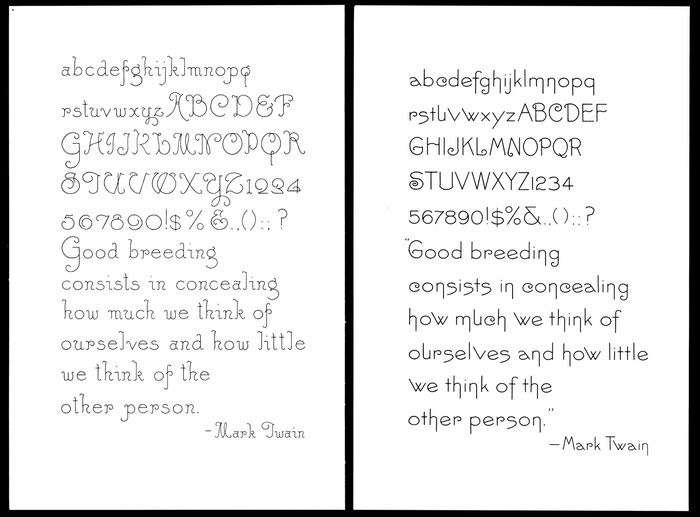 abcdefghijklmnopq
rstuvwxyzABCDEF
GHIJKLMNOPQR
STUVWXYZ1234
567890!$%&.,():;?
Good breeding
consists in concealing
how much we think of
ourselves and how little
we think of the
other person.
-Mark Twain
abcdefghijklmnopq
rstuvwxyzABCDEF
GHIJKLMNOPQR
STUVWXYZ1234
567890!$%&.,():;?
"Good breeding
consists in concealing
how much we think of
ourselves and how little
we think of the
other person."
—Mark Twain